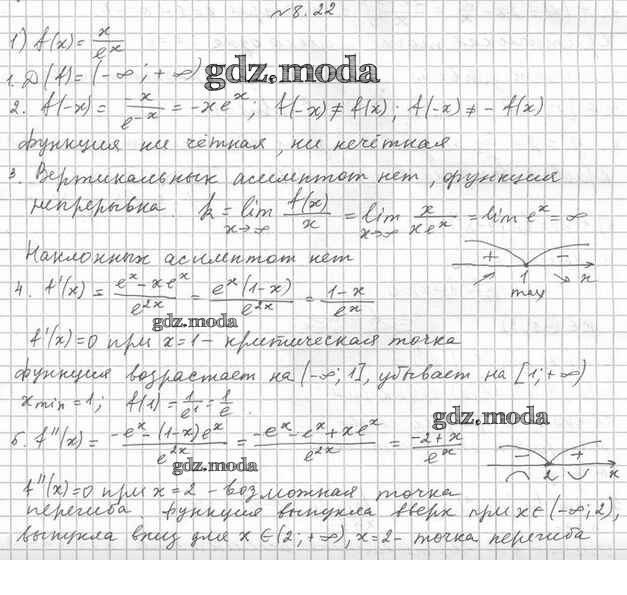 №8.22
1) f(x) = x/e^x
1. D(f) = (-∞; +∞)
gdz.moda
2. f(-x) = x/e^-x = -xe^x; f(-x) ≠ f(x); f(-x) ≠ - f(x)
функция ни чётная, ни нечётная
3. Вертикальных асимптот нет, функция
непрерывна. k = lim x→∞ f(x)/x = lim x→∞ x/xe^x = lim e^x = ∞
Наклонных асимптот нет
+ - 1 max x
4. f'(x) = e^x - xe^x/e^2x = e^x(1-x)/e^2x = 1-x/e^x
gdz.moda
f'(x) = 0 при x = 1 - критическая точка
функция возрастает на (-∞; 1], убывает на [1; +∞)
x min = 1; f(1) = 1/e^1 = 1/e.
gdz.moda
5. f''(x) = -e^x - (1-x)e^x/e^2x = -e^x - e^x + xe^x/e^2x = -2+x/e^x
gdz.moda
- + 2 x
f''(x) = 0 при x = 2 - возможная точка
перегиба функция выпукла вверх при x∈(-∞; 2),
выпукла вниз для x ∈ (2; +∞), x = 2 - точка перегиба